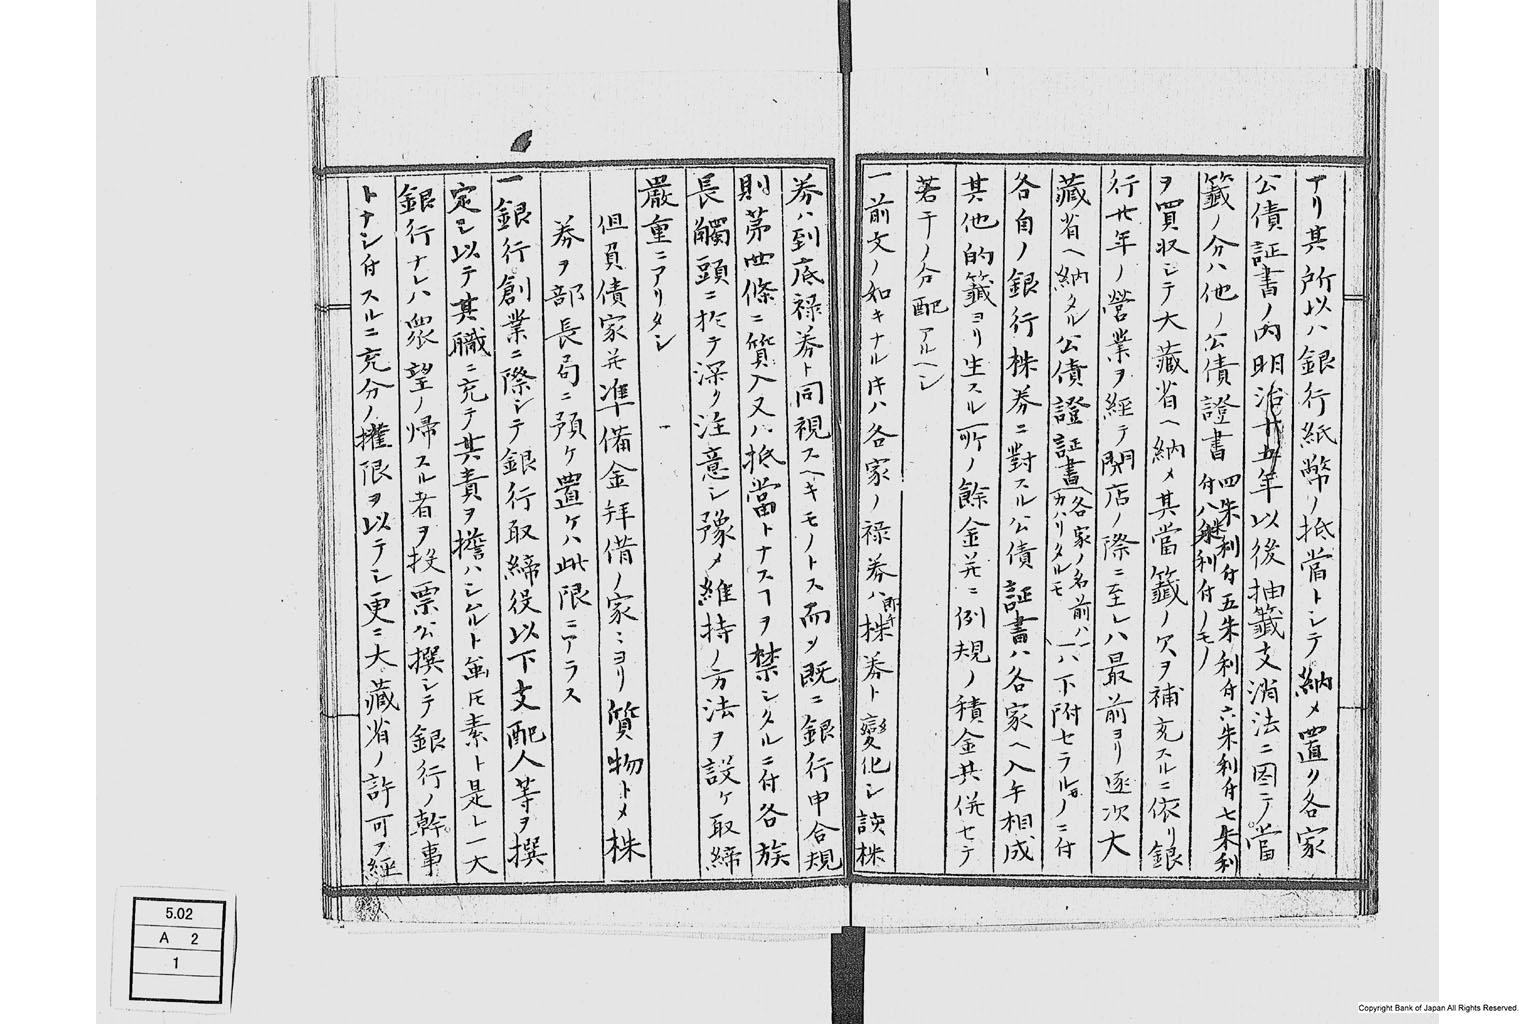 ナリ其所以ハ銀行紙幣ノ抵當トシテ納メ置ク各家
公債証書ノ内明治廿五年以後抽籤支消法ニ因テ當
籤ノ分ハ他ノ公債證書四朱利付五朱利付六朱利付七朱利付八朱利付ノモノ
ヲ買収シテ大藏省ヘ納メ其當籤ノ欠ヲ補充スルニ依リ銀
行廿年ノ營業ヲ經テ閉店ノ際ニ至レハ最前ヨリ逐次大
藏省ヘ納タル公債證証書(各家ノ名前ハカハリタルモ)ハ下附セラルヽモノニ付
各自ノ銀行株券ニ對スル公債証書ハ各家ヘ入手相成
其他的籤ヨリ生スル所ノ餘金并ニ例規ノ積金其併セテ
若干ノ分配アルヘシ
一前文ノ如キナル片ハ各家ノ禄券ハ即チ株券ト變化シ該株
券ハ到底禄券ト同視スヘキモノトス而シ既ニ銀行申合規
則第四條ニ質入又ハ抵當トナスヿヲ禁シタルニ付各族
長觸頭ニ於テ深ク注意シ豫メ維持ノ方法ヲ設ケ取締
嚴重ニアリタシ
但負債家并準備金拜借ノ家ニヨリ質物トメ株
券ヲ部長局ニ預ケ置ケハ此限ニアラス
一銀行創業ニ際シテ銀行取締役以下支配人等ヲ撰
定シ以テ其職ニ充テ其責ヲ擔ハシムルト虽圧素ト是レ一大
銀行ナレハ衆望ノ帰スル者ヲ投票公撰シテ銀行ノ幹事
トナシ付スルニ充分ノ權限ヲ以テシ更ニ大藏省ノ許可ヲ經
5.02
A 2
1
Copyright Bank of Japan All Rights Reserved.